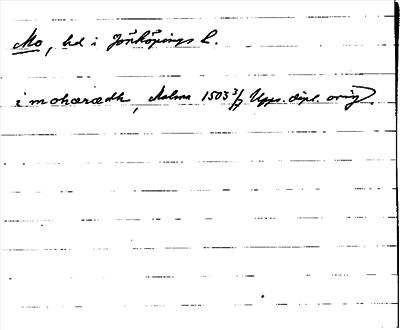 Mo, hd i Jönköpings l.
i mohærædh, Kalma 1503 3/7 Upps. dipl. orig.